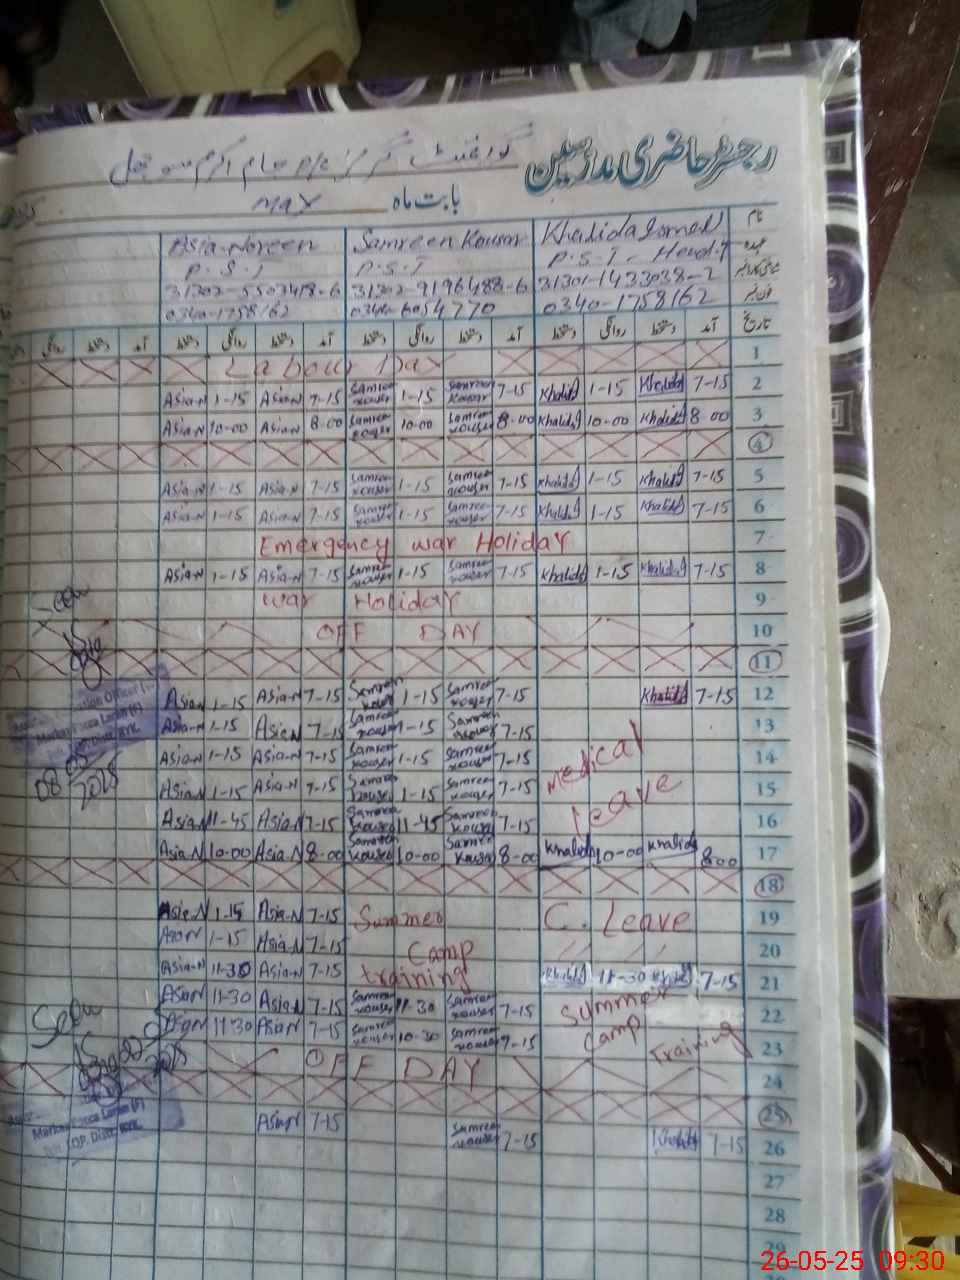 رجسٹر حاضری مدرسین
بابت ماہ May
نام Khalida Samreen Kousar Asia Noreen
عہدہ P.S.T - Head-T P.S.T P.S.T
شناختی کارڈ نمبر 31301-1433038-2 31302-9196488-6 31302-5502418-6
فون نمبر 0340-1758162 0340-6054770 0340-1758162
تاریخ آمد دستخط روانگی دستخط آمد دستخط روانگی دستخط آمد دستخط روانگی دستخط آمد دستخط روانگی
1 Labour Day
2 7-15 Khalida 1-15 Khalida 7-15 Samreen Kousar 1-15 Samreen Kouser 7-15 Asia-N 1-15 Asia-N
3 8-00 Khalida 10-00 Khalida 8-00 Samreen Kouser 10-00 Samreen Kouser 8-00 Asia-N 10-00 Asia-N
4
5 7-15 Khalida 1-15 Khalida 7-15 Samreen Kouser 1-15 Samreen Kouser 7-15 Asia-N 1-15 Asia-N
6 7-15 Khalida 1-15 Khalida 7-15 Samreen Kouser 1-15 Samreen Kouser 7-15 Asia-N 1-15 Asia-N
7 Emergency war Holiday
8 7-15 Khalida 1-15 Khalida 7-15 Samreen Kouser 1-15 Samreen Kouser 7-15 Asia-N 1-15 Asia-N
9 War Holiday
10 OFF DAY
11
12 7-15 Khalida 7-15 Samreen Kouser 1-15 Samreen Kouser 7-15 Asia-N 1-15 Asia-N
13 7-15 Samreen Kouser 1-15 Samreen Kouser 7-15 Asia N 1-15 Asia-N
14 Medical 7-15 Samreen Kouser 1-15 Samreen Kouser 7-15 Asia-N 1-15 Asia-N
15 leave 7-15 Samreen Kouser 1-15 Samreen Kouser 7-15 Asia-N 1-15 Asia-N
16 7-15 Samreen Kouser 11-45 Samreen Kouser 7-15 Asia-N 11-45 Asia-N
17 8-00 Khalida 10-00 Khalida 8-00 Samreen Kouser 10-00 Samreen Kouser 8-00 Asia-N 10-00 Asia-N
18
19 C. Leave Summer 7-15 Asia-N 1-15 Asia-N
20 Camp 7-15 Asia-N 1-15 Asia N
21 7-15 Khalida 11-30 Khalida training 7-15 Asia-N 11-30 Asia-N
22 Summer 7-15 Samreen Kouser 11-30 Samreen Kouser 7-15 Asia-N 11-30 Asia N
23 Camp Training 7-15 Samreen Kouser 10-30 Samreen Kouser 7-15 Asia N 11-30 Asia N
24 OFF DAY
25
26 7-15 Khalida 7-15 Samreen Kouser 7-15 Asia N
27
28
29
08
2025
26-05-25 09:30